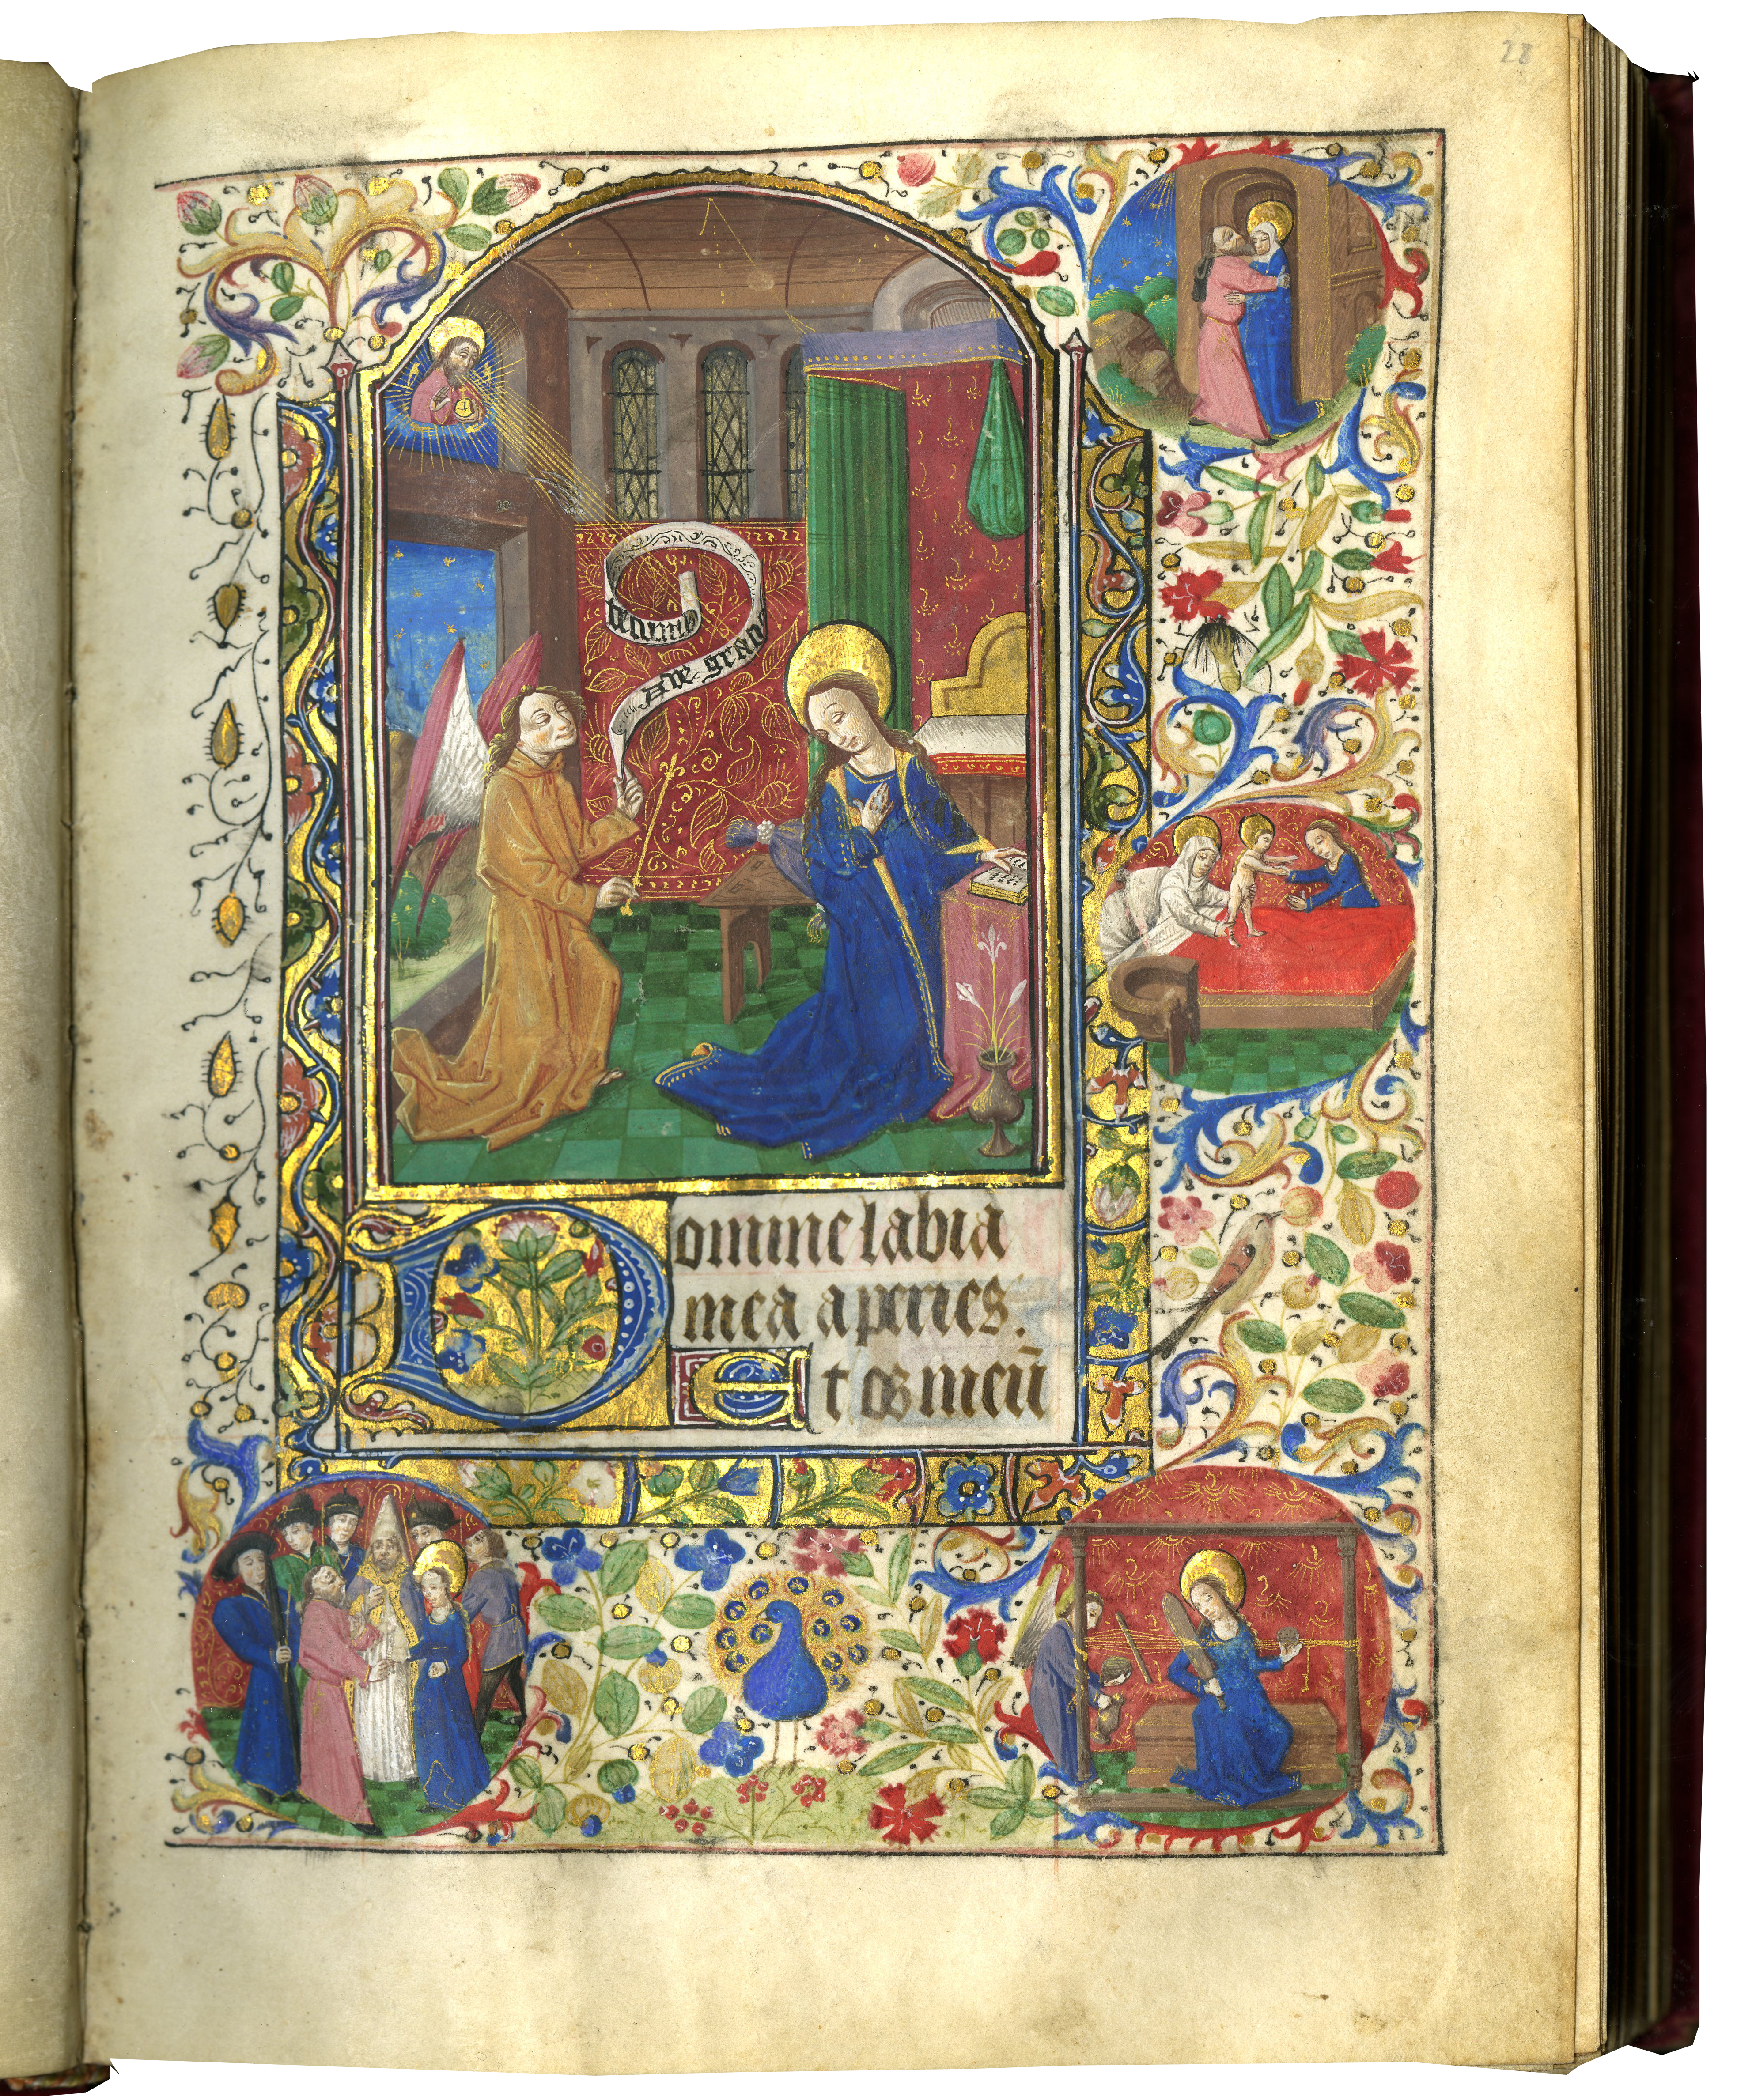 22
Ave gracia
tecum
Domine labia
mea aperies.
Et os meū